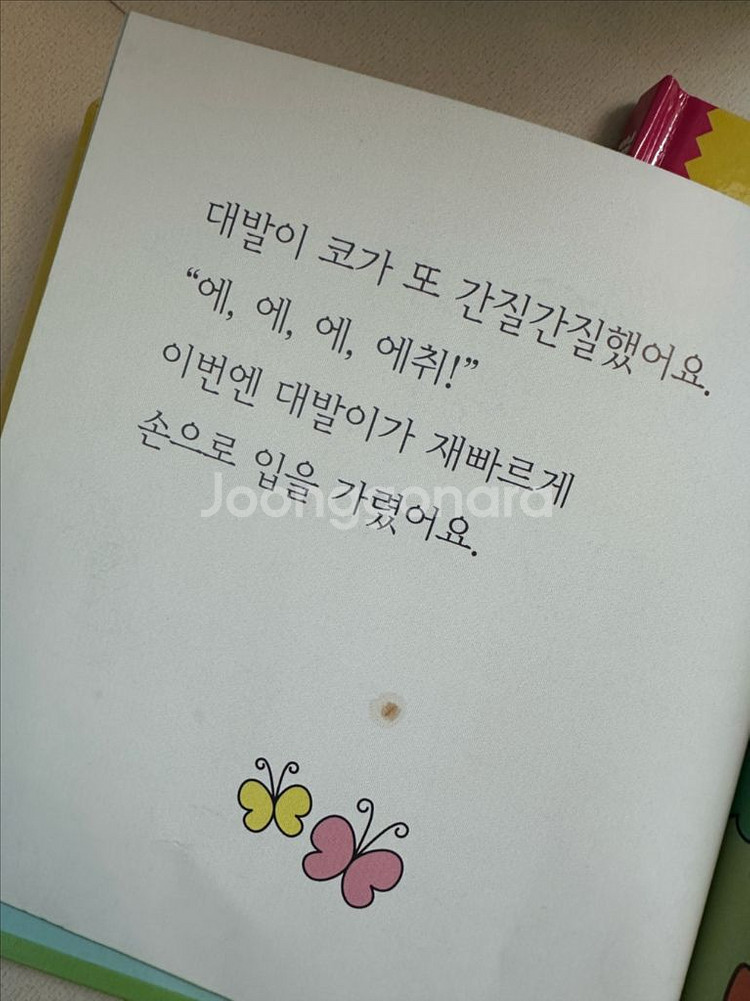 대발이 코가 또 간질간질했어요.
“에, 에, 에, 에취!”
이번엔 대발이가 재빠르게
손으로 입을 가렸어요.
Joonggonara